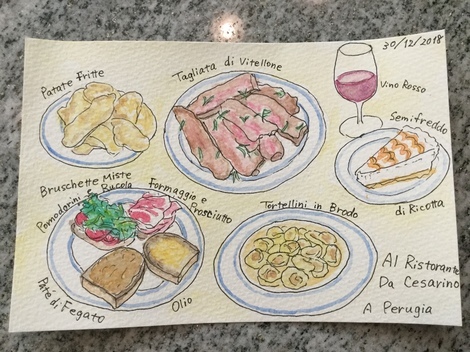 30/12/2018
Patate Fritte
Tagliata di Vitellone
Vino Rosso
Semifreddo
di Ricotta
Bruschette Miste
Pomodorini e Rucola
Formaggio e
Prosciutto
Paté di Fegato
Olio
Tortellini in Brodo
Al Ristorante
Da Cesarino
A Perugia